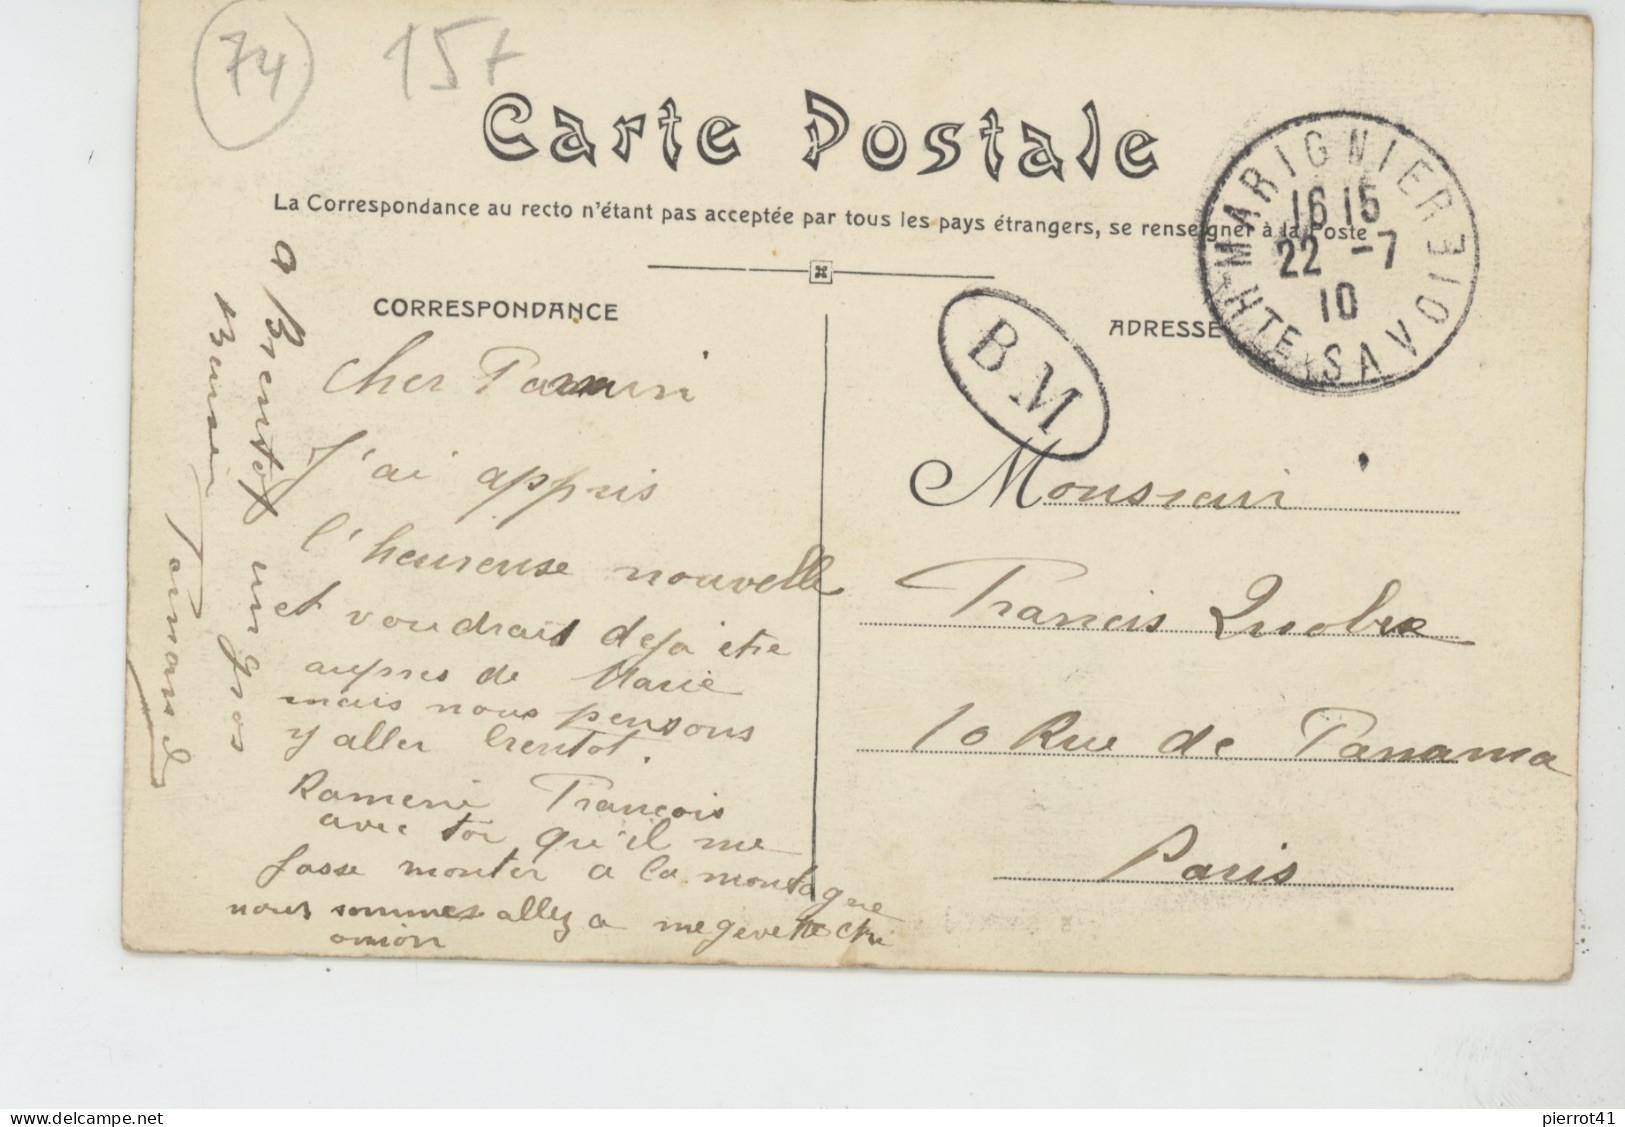 74
15+
Carte Postale
La Correspondance au recto n'étant pas acceptée par tous les pays étrangers, se renseigner à la Poste
MARIGNIER
16 15
22 -7
10
HTE SAVOIE
CORRESPONDANCE
ADRESSE
BM
cher Parrain
J'ai appris
l'heureuse nouvelle
et voudrais deja etre
aupres de Marie
mais nous pensons
y aller bientot.
Rameni François
avec toi qu'il me
fasse monter a la montagne
nous sommes allez a megevette
a Bientot un gros
Baiser
Fernand
Monsieur
Francis
10 Rue de Panama
Paris
delcampe.net
pierrot41